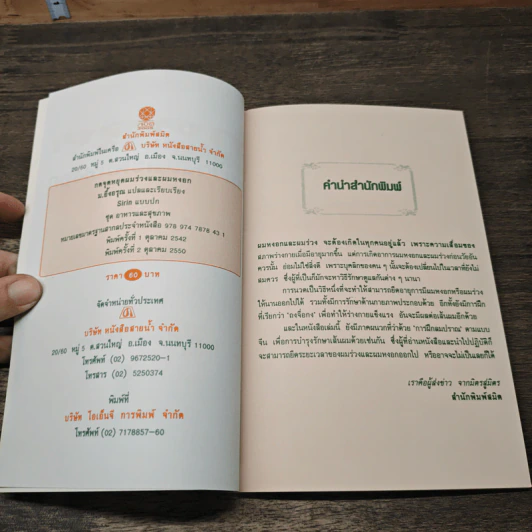 สำนักพิมพ์สมิต
สำนักพิมพ์ในเครือ บริษัท หนังสือสายน้ำ จำกัด
20/60 หมู่ 5 ต.สวนใหญ่ อ.เมือง จ.นนทบุรี 11000
กดจุดหยุดผมร่วงและผมหงอก
ม.อึ้งอรุณ แปลและเรียบเรียง
Sirin แบบปก
ชุด อาหารและสุขภาพ
หมายเลขมาตรฐานสากลประจำหนังสือ 978 974 7878 43 1
พิมพ์ครั้งที่ 1 ตุลาคม 2542
พิมพ์ครั้งที่ 2 ตุลาคม 2550
ราคา 60 บาท
จัดจำหน่ายทั่วประเทศ
บริษัท หนังสือสายน้ำ จำกัด
20/60 หมู่ 5 ต.สวนใหญ่ อ.เมือง จ.นนทบุรี 11000
โทรศัพท์ (02) 9672520-1
โทรสาร (02) 5250374
พิมพ์ที่
บริษัท โอเอ็นจี การพิมพ์ จำกัด
โทรศัพท์ (02) 7178857-60
คำนำสำนักพิมพ์
ผมหงอกและผมร่วง จะต้องเกิดในทุกคนอยู่แล้ว เพราะความเสื่อมของ
สภาพร่างกายเมื่อมีอายุมากขึ้น แต่การเกิดอาการผมหงอกและผมร่วงก่อนวัยอัน
ควรนั้น ย่อมไม่ใช่สิ่งดี เพราะบุคลิกของคน ๆ นั้นจะต้องเปลี่ยนไปในเวลาที่ยังไม่
สมควร ซึ่งผู้ที่เป็นก็มักจะหาวิธีรักษาดูแลกันต่าง ๆ นานา
การนวดเป็นวิธีหนึ่งที่จะทำให้สามารถยืดอายุการมีผมหงอกหรือผมร่วง
ให้นานออกไปได้ รวมทั้งมีการรักษาด้านกายภาพประกอบด้วย อีกทั้งยังมีการฝึก
ที่เรียกว่า "องจ็อกง" เพื่อทำให้ร่างกายแข็งแรง อันจะมีผลต่อเส้นผมอีกด้วย
และในหนังสือเล่มนี้ ยังมีภาคผนวกที่ว่าด้วย "การฝึกลมปราณ" ตามแบบ
จีน เพื่อการบำรุงรักษาเส้นผมด้วยเช่นกัน ซึ่งผู้ที่อ่านหนังสือและนำไปปฏิบัติก็
จะสามารถยืดระยะเวลาของผมร่วงและผมหงอกออกไป หรืออาจจะไม่เป็นเลยก็ได้
เราคือผู้ส่งข่าว จากมิตรสู่มิตร
สำนักพิมพ์สมิต